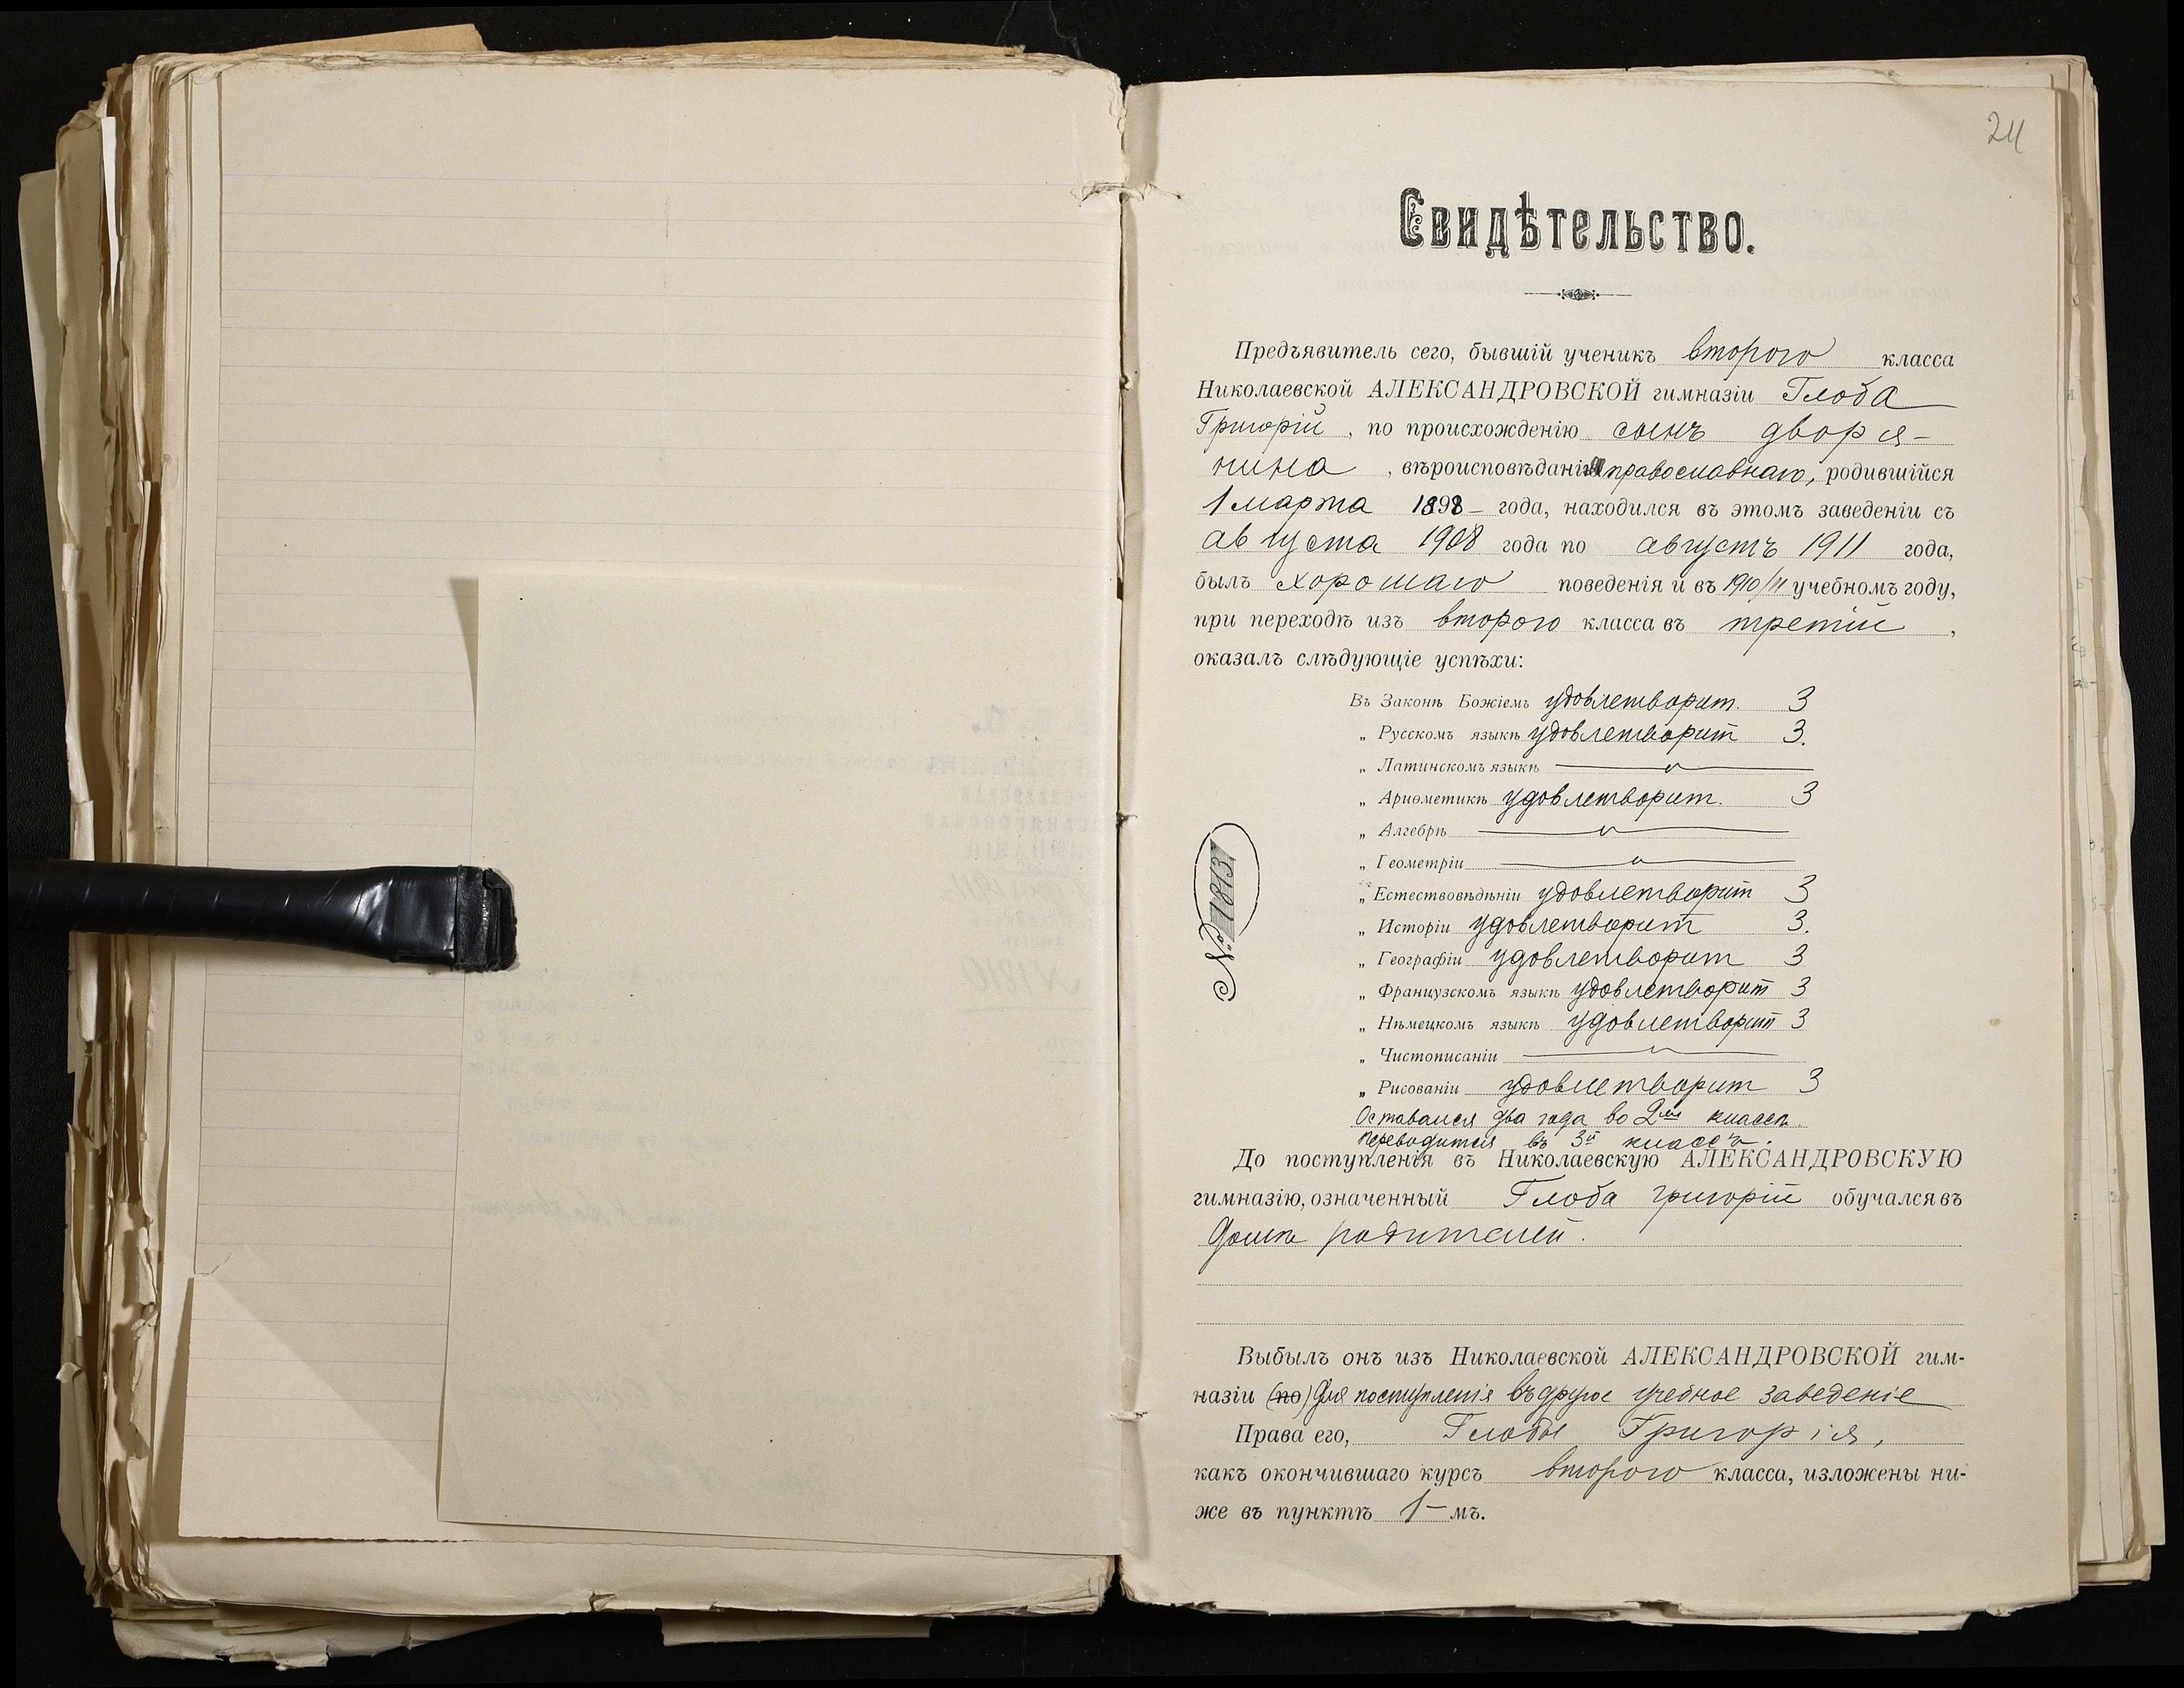 24
Свидѣтельство.
Предъявитель сего, бывшій ученикъ второго класса
Николаевской АЛЕКСАНДРОВСКОЙ гимназіи Глоба
Григорій, по происхожденію сынъ дворя-
нина, вѣроисповѣданія православнаго, родившійся
1 марта 1898 - года, находился въ этомъ заведеніи съ
августа 1908 года по августъ 1911 года,
былъ хорошаго поведенія и въ 1910/11 учебномъ году,
при переходѣ изъ второго класса въ третій,
оказалъ слѣдующіе успѣхи:
Въ Законѣ Божіемъ удовлетворит. 3
„ Русскомъ языкѣ удовлетворит 3.
„ Латинскомъ языкѣ —
„ Ариѳметикѣ удовлетворит. 3
„ Алгебрѣ —
„ Геометріи —
„ Естествовѣдѣніи удовлетворит 3
„ Исторіи удовлетворит 3.
„ Географіи удовлетворит 3
„ Французскомъ языкѣ удовлетворит 3
„ Нѣмецкомъ языкѣ удовлетворит 3
„ Чистописаніи —
„ Рисованіи удовлетворит 3
Оставался два года во 2мъ классѣ.
Переводится въ 3й классъ.
№ 1813
До поступленія въ Николаевскую АЛЕКСАНДРОВСКУЮ
гимназію, означенный Глоба Григорій обучался въ
домѣ родителей.
Выбылъ онъ изъ Николаевской АЛЕКСАНДРОВСКОЙ гим-
назіи (по) для поступленія въ другое учебное заведеніе
Права его, Глобы Григорія,
какъ окончившаго курсъ второго класса, изложены ни-
же въ пунктѣ 1-мъ.